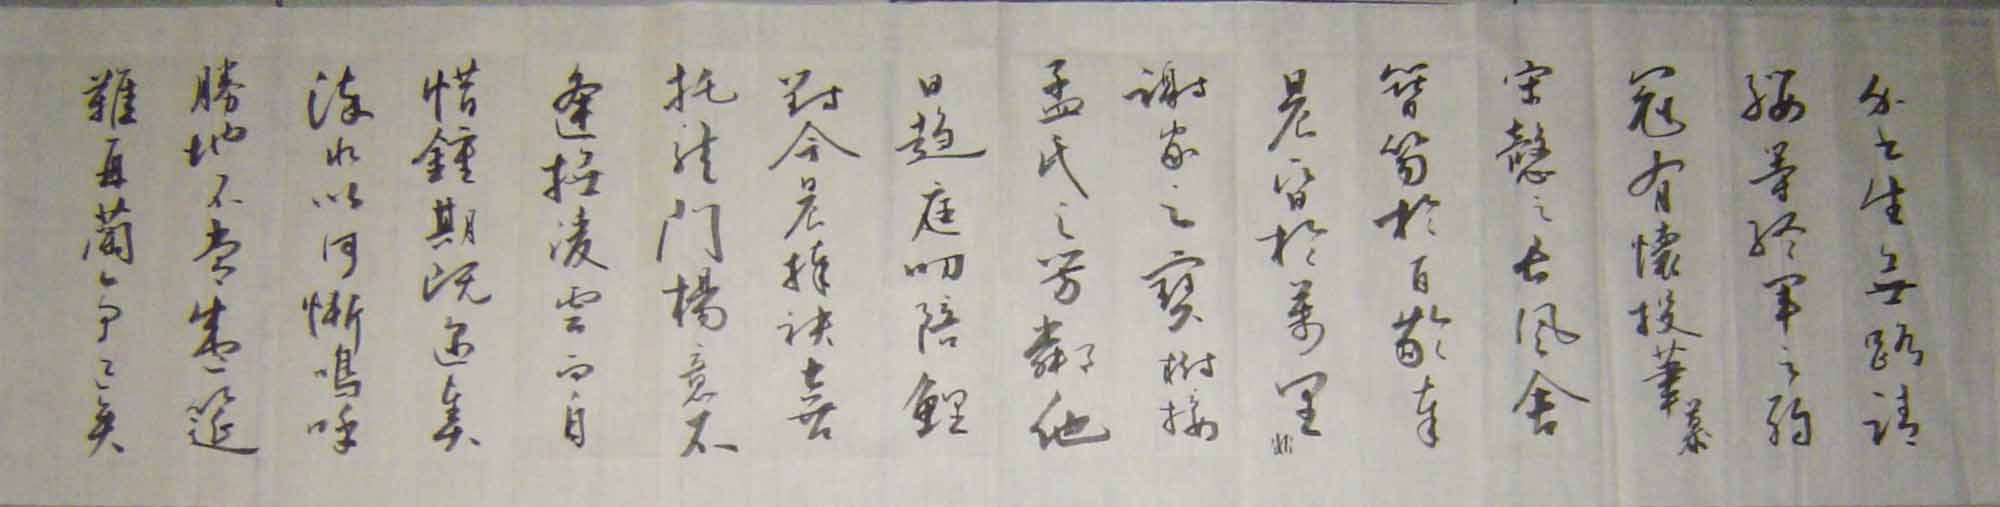 介書生無路請
纓等終軍之弱
冠有懷投筆慕
宗愨之長風舍
簪笏於百齡奉
晨昏於萬里非
謝家之寶樹接
孟氏之芳鄰他
日趨庭叨陪鯉
對今晨捧袂喜
托龍門楊意不
逢撫凌雲而自
惜鍾期既遇奏
流水以何慚嗚呼
勝地不常盛筵
難再蘭亭已矣